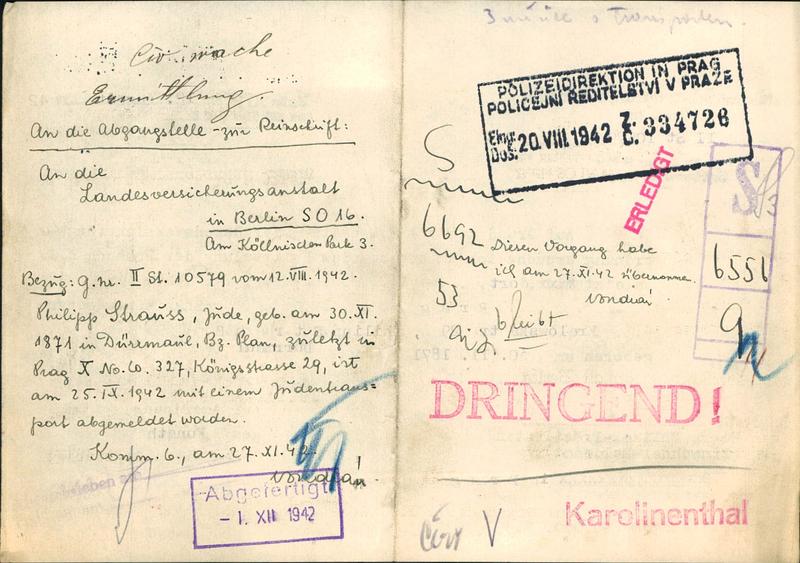 Ermittlung.
An die Abgangstelle - zur Reinschrift:
An die
Landesversicherungsanstalt
in Berlin SO 16.
Am Köllnischen Park 3.
Bezug: G. nr. II St. 10579 vom 12.VIII. 1942.
Philipp Strauss, Jude, geb. am 30.XI.
1871 in Dürrmaul, Bz. Plan, zuletzt in
Prag X No. Co. 327, Königsstrasse 29, ist
am 25.IX.1942 mit einem Judentrans=
port abgemeldet worden.
Komm. 6., am 27.XI.42.
Abgefertigt
- 1. XII 1942
POLIZEIDIREKTION IN PRAG
POLICEJNÍ ŘEDITELSTVÍ V PRAZE
Eing.
Doš. 20. VIII 1942 Z. Č. 334726
ERLEDIGT
S
6692
53
Diesen Vorgang habe
ich am 27.XI.42 übernommen.
bleibt
S
6551
DRINGEND!
Karolinenthal
V